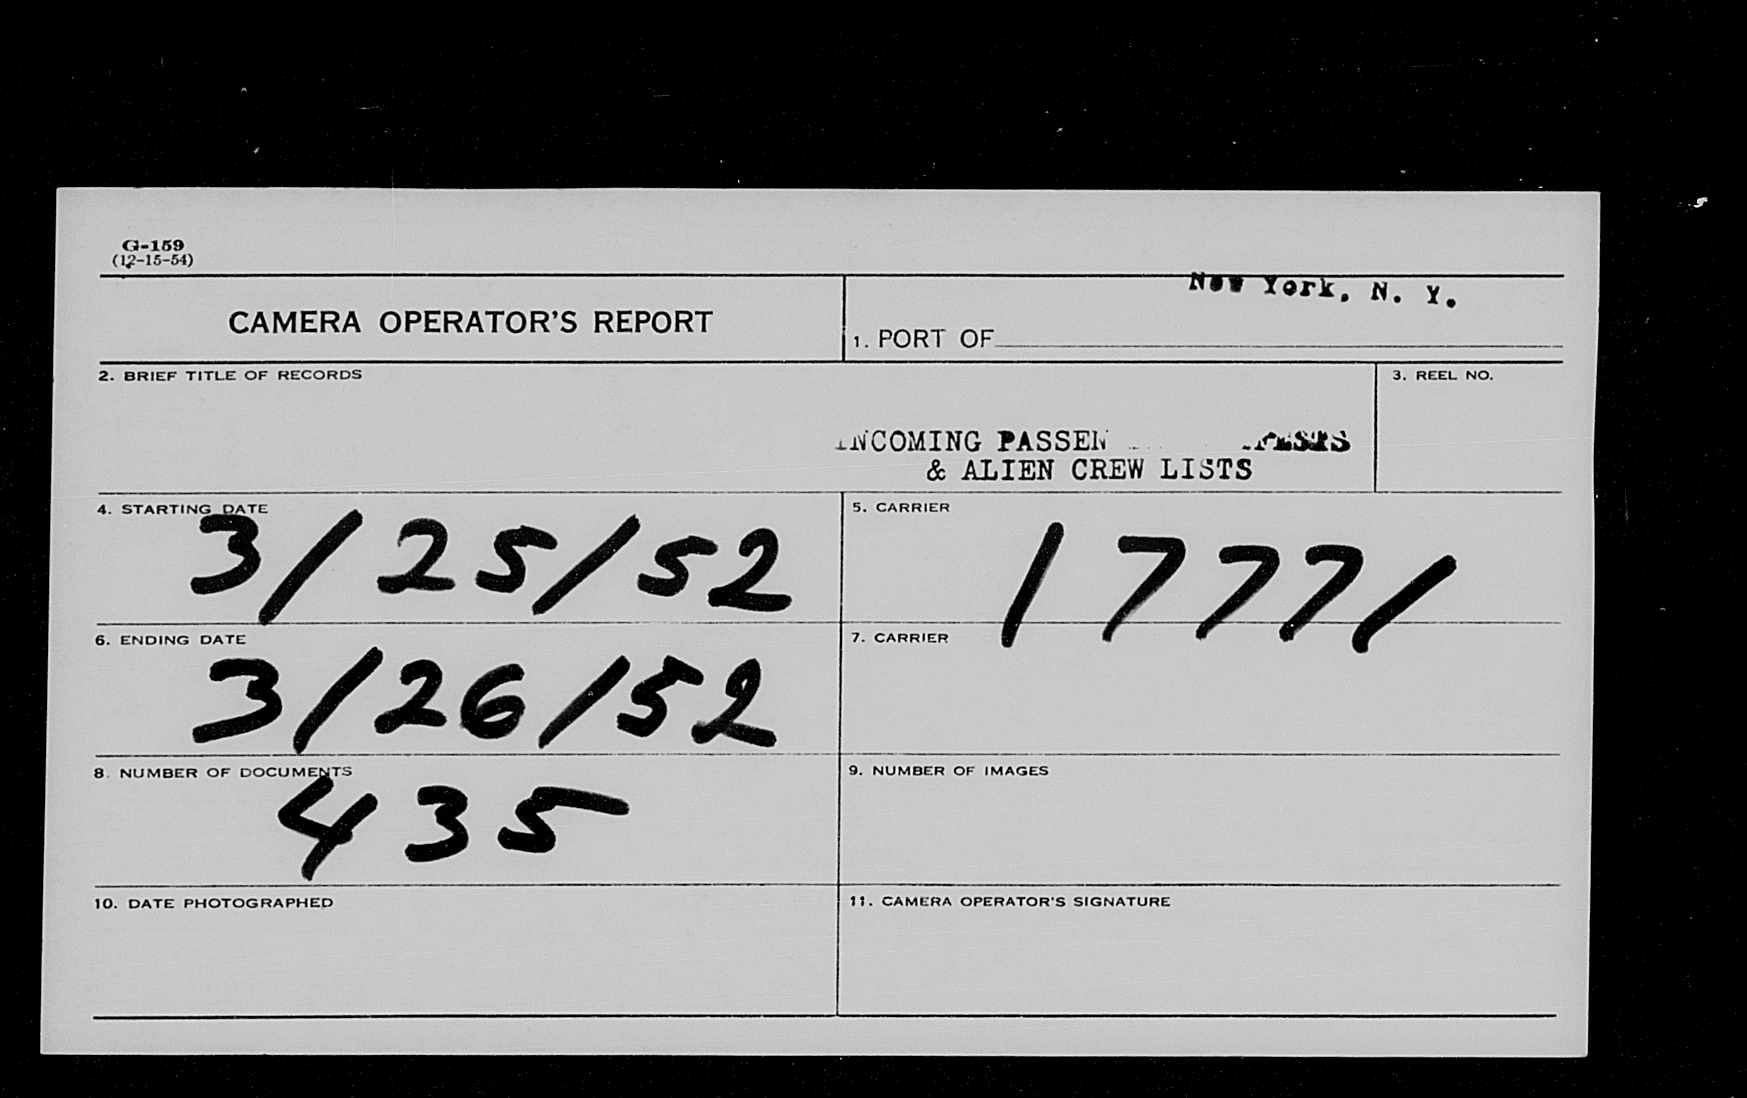 G-159
(12-15-54)
CAMERA OPERATOR'S REPORT
New York, N. Y.
1. PORT OF
2. BRIEF TITLE OF RECORDS
3. REEL NO.
INCOMING PASSEN
& ALIEN CREW LISTS
4. STARTING DATE
3/25/52
5. CARRIER
17771
6. ENDING DATE
3/26/52
7. CARRIER
8. NUMBER OF DOCUMENTS
435
9. NUMBER OF IMAGES
10. DATE PHOTOGRAPHED
11. CAMERA OPERATOR'S SIGNATURE